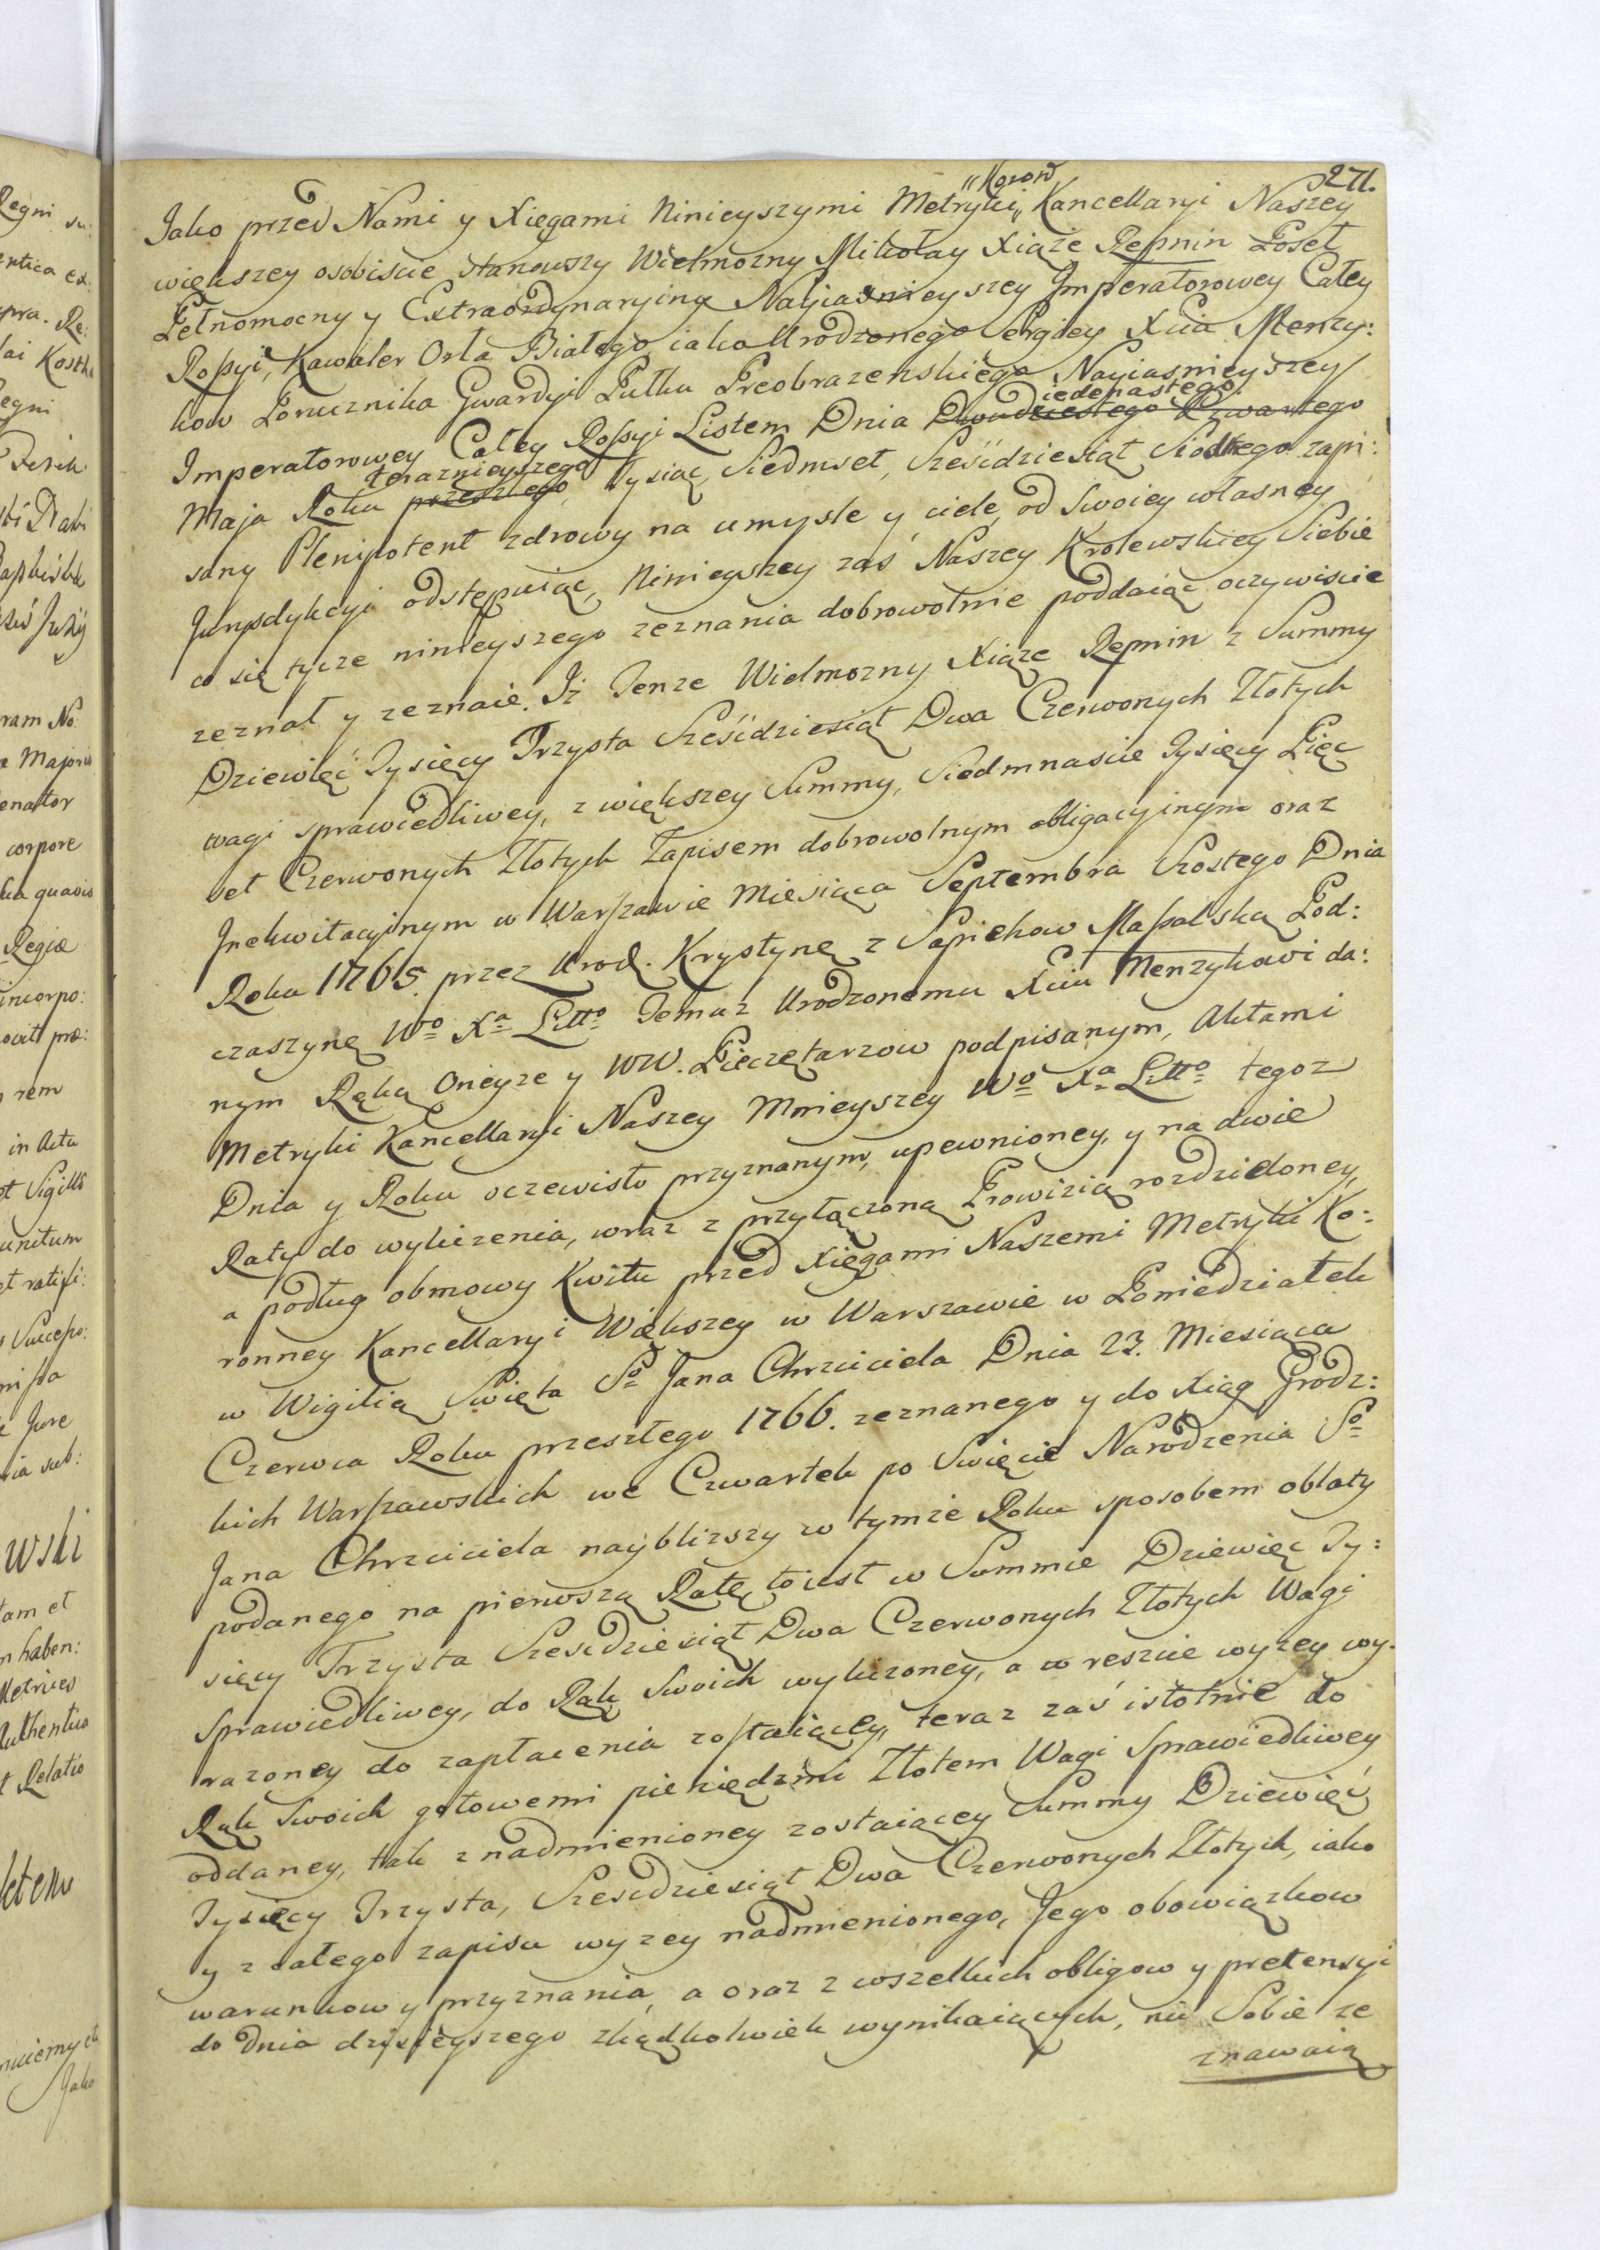 271.
Jako przed Nami y Xięgami Ninieyszymi Metryki „Koron„ Kancellaryi Naszey
większey osobiscie stanowszy Wielmozny Mikołay Xiąże Repnin Poseł
Pełnomocny y Extraordynaryiny Nayiasnieyszey Imperatorowey Całey
Roſsyi, Kawaler Orła Białego iako Urodzonego Sergiey Xcia Menzy:
kow Porucznika Gwardyi Pułku Preobrazenskiego Nayiasnieyszey
Imperatorowey Całey Roſsyi Listem Dnia Dwudziestego Czwartego iedenastego
Maja Roku przeszłego teraznieyszego Tysiąc Siedmset, Sześcdziesiąt Siodmego zapi:
sany Plenipotent zdrowy na umysle y ciele, od Swoiey własney
Jurysdykcyi odstępuiąc, Ninieyszey zaś Naszey Krolewskiey Siebie
co się tycze ninieyszego zeznania dobrowolnie poddaiąc oczywiscie
zeznał y zeznaie. Iż Tenze Wielmozny Xiąze Repnin z Summy
Dziewięć Tysięcy Trzysta Sześcdziesiąt Dwa Czerwonych Złotych
wagi sprawiedliwey, z większey Summy, Siedmnascie Tysięcy Pięc
set Czerwonych Złotych Zapisem dobrowolnym obligacyinym oraz
Inekwitacyinym w Warſzawie Miesiąca Septembra Szostego Dnia
Roku 1765. przez Urod. Krystynę z Sapiehow Maſsalską Pod:
czaszynę Wo Xa Litto Temuz Urodzonemu Xciu Menzykowi da:
nym Ręką Oneyze y WW. Pieczętarzow podpisanym, Aktami
Metryki Kancellaryi Naszey Mnieyszey Wo Xa Litto tegoz
Dnia y Roku oczewisto przyznanym, upewnioney, y na dwie
Raty do wyliczenia, wraz z przyłączoną Prowizią rozdzieloney,
a podług obmowy Kwitu przed Xięgami Naszemi Metryki Ko:
ronney Kancellaryi Większey w Warszawie w Poniedziałek
w Wigilią Swięta So Jana Chrzciciela Dnia 23. Miesiąca
Czerwca Roku przeszłego 1766. zeznanego y do Xiąg Grodz:
kich Warſzawskich we Czwartek po Swięcie Narodzenia So
Jana Chrzciciela nayblizszy w tymże Roku sposobem oblaty
podanego na pierwszą Ratę, toiest w Summie Dziewięc Ty:
sięcy Trzysta Szescdziesiąt Dwa Czerwonych Złotych Wagi
Sprawiedliwey, do Rąk Swoich wyliczoney, a w reszcie wyzey wy-
razoney do zapłacenia zoſtaiącey, teraz zaś istotnie do
Rąk Swoich gotowemi pieniędzmi Złotem Wagi Sprawiedliwey
oddaney, tak z nadmienioney zostaiącey Summy Dziewięć
Tysięcy Trzysta, Szescdziesiąt Dwa Czerwonych Złotych, iako
y z całego zapisu wyzey nadmienionego, Jego obowiązkow
warunkow y przyznania, a oraz z wszelkich obligow y pretensyi
do Dnia dzisieyszego zkądkolwiek wynikaiących, nic Sobie ze
znawaią